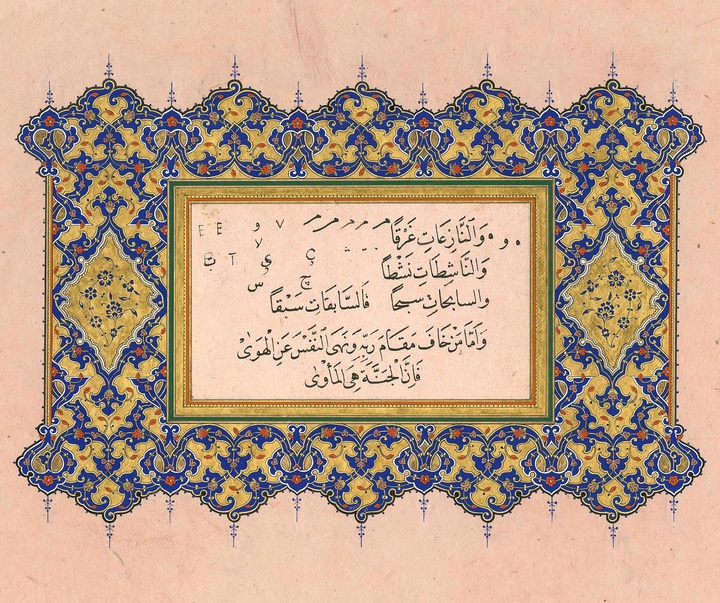 وَالنَّازِعَاتِ غَرْقًا
وَالنَّاشِطَاتِ نَشْطًا
والسابحاتِ سبحًا فَالسَّابِقَاتِ سَبْقًا
وَاَمَّا مَنْ خَافَ مَقَامَ رَبِّهِ وَنَهَى النَّفْسَ عَنِ الْهَوٰى
فَاِنَّ الْجَنَّةَ هِيَ الْمَأْوٰى